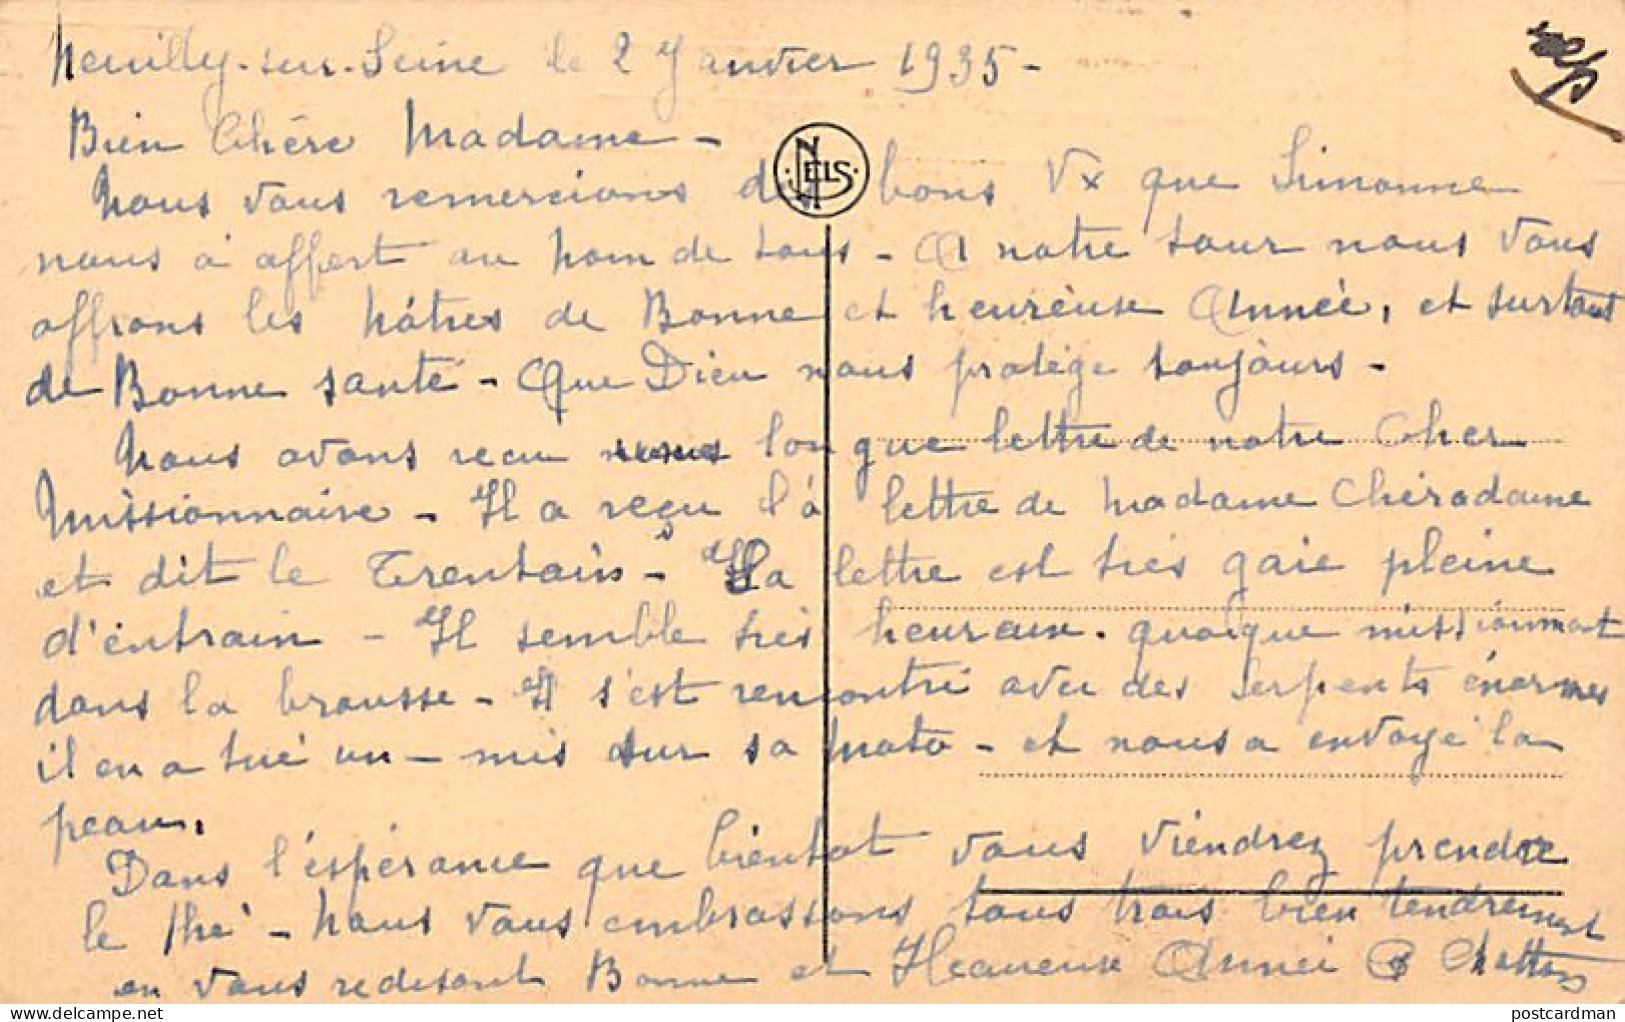 Neuilly-sur-Seine le 2 Janvier 1935-
Bien Chère Madame -
NELS
Nous vous remercions des bons Vx que Simonne
nous à offert au nom de tous - A notre tour nous vous
offrons les nôtres de Bonne et heureuse Année, et surtout
de Bonne santé - Que Dieu nous protège toujours -
Nous avons reçu longue lettre de notre Cher
Missionnaire - Il a reçu l'à lettre de Madame Chéradame
et dit le Trentain - La lettre est très gaie pleine
d'entrain - Il semble très heureux. quoique missionnant
dans la brousse - Il s'est rencontré avec des serpents énormes
il en a tué un - mis sur sa moto - et nous a envoyé la
peau.
Dans l'espérance que bientot vous viendrez prendre
le thé - Nous vous embrassons tous trois bien tendrement
en vous redisant Bonne et Heureuse Année
postcardman